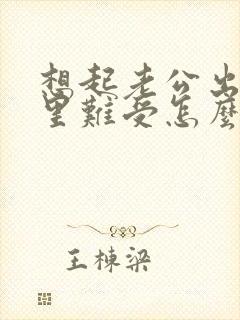 想起老公出
里難受怎麼
王棟梁